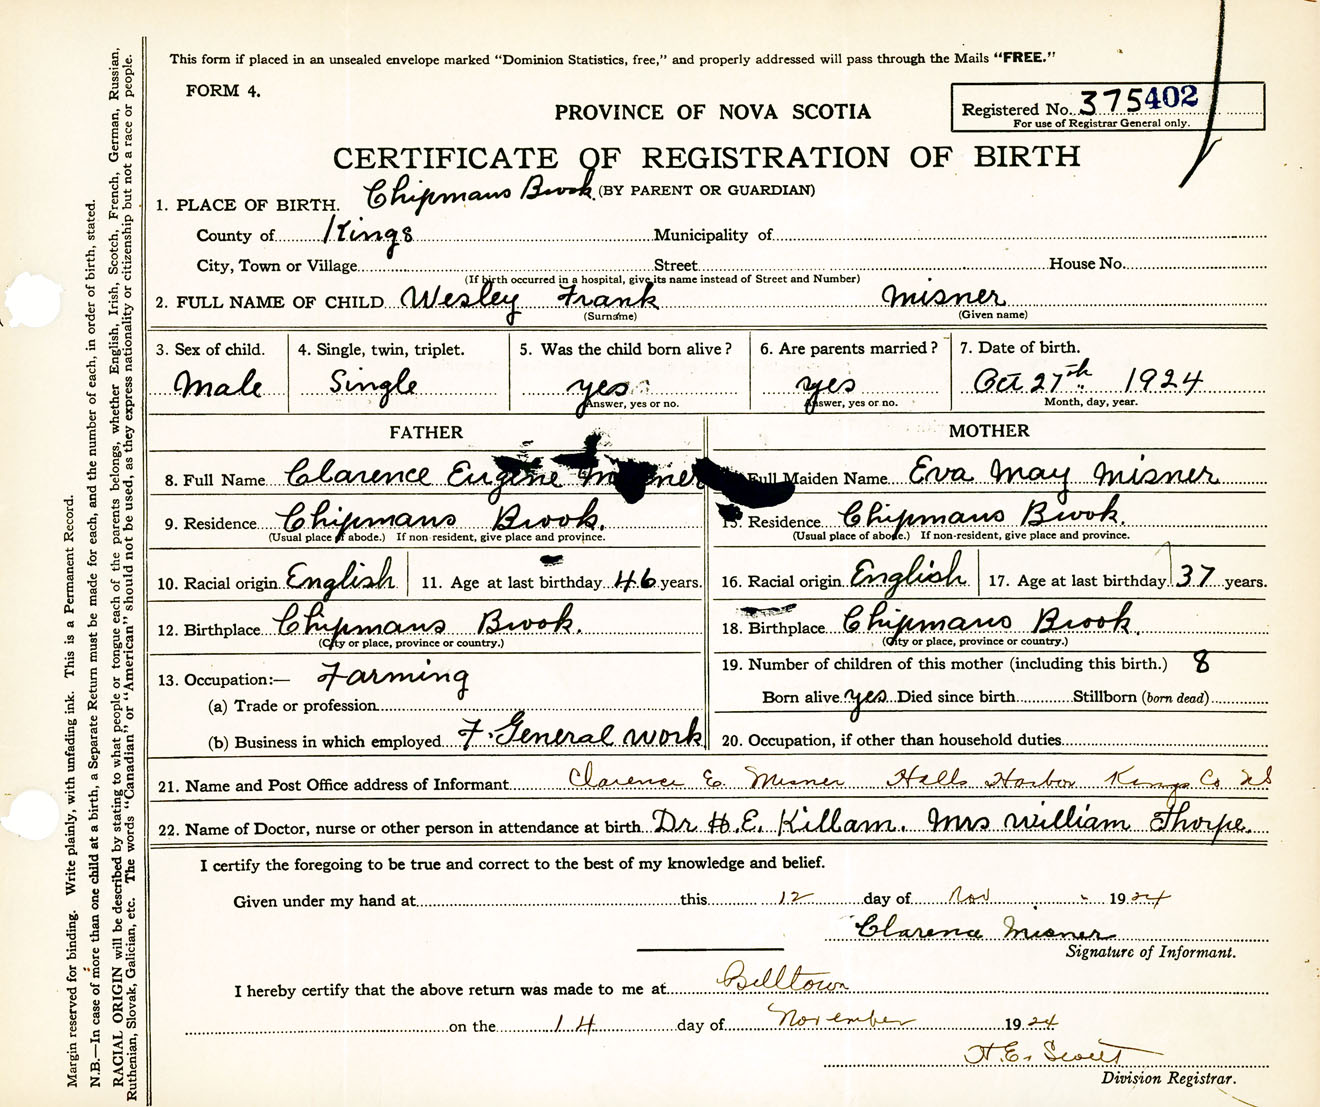 This form if placed in an unsealed envelope marked "Dominion Statistics, free," and properly addressed will pass through the Mails "FREE."
FORM 4.
PROVINCE OF NOVA SCOTIA
Registered No. 375402
For use of Registrar General only.
CERTIFICATE OF REGISTRATION OF BIRTH
(BY PARENT OR GUARDIAN)
1. PLACE OF BIRTH. Chipmans Brook
County of Kings Municipality of
City, Town or Village Street House No.
(If birth occurred in a hospital, give its name instead of Street and Number)
2. FULL NAME OF CHILD Wesley Frank Misner
(Surname) (Given name)
3. Sex of child. 4. Single, twin, triplet. 5. Was the child born alive? 6. Are parents married? 7. Date of birth.
Male Single yes yes Oct 27th 1924
Answer, yes or no. Answer, yes or no. Month, day, year.
FATHER MOTHER
8. Full Name Clarence Eugene Misner Full Maiden Name Eva May Misner
9. Residence Chipmans Brook. 15. Residence Chipmans Brook.
(Usual place of abode.) If non-resident, give place and province. (Usual place of abode.) If non-resident, give place and province.
10. Racial origin English 11. Age at last birthday 46 years. 16. Racial origin English 17. Age at last birthday 37 years.
12. Birthplace Chipmans Brook. 18. Birthplace Chipmans Brook.
(City or place, province or country.) (City or place, province or country.)
13. Occupation:— Farming 19. Number of children of this mother (including this birth.) 8
(a) Trade or profession Born alive yes Died since birth Stillborn (born dead)
(b) Business in which employed F. General work 20. Occupation, if other than household duties
21. Name and Post Office address of Informant Clarence E. Misner Halls Harbor Kings Co NS
22. Name of Doctor, nurse or other person in attendance at birth Dr H.E. Killam. Mrs William Thorpe.
I certify the foregoing to be true and correct to the best of my knowledge and belief.
Given under my hand at this 12 day of Nov 1924
Clarence Misner
Signature of Informant.
I hereby certify that the above return was made to me at Billtown
on the 14 day of November 1924
H.E.
Division Registrar.
Margin reserved for binding. Write plainly, with unfading ink. This is a Permanent Record.
N.B.—In case of more than one child at a birth, a Separate Return must be made for each, and the number of each, in order of birth, stated.
RACIAL ORIGIN will be described by stating to what people or tongue each of the parents belongs, whether English, Irish, Scotch, French, German, Russian,
Ruthenian, Slovak, Galician, etc. The words "Canadian" or "American" should not be used, as they express nationality or citizenship but not a race or people.